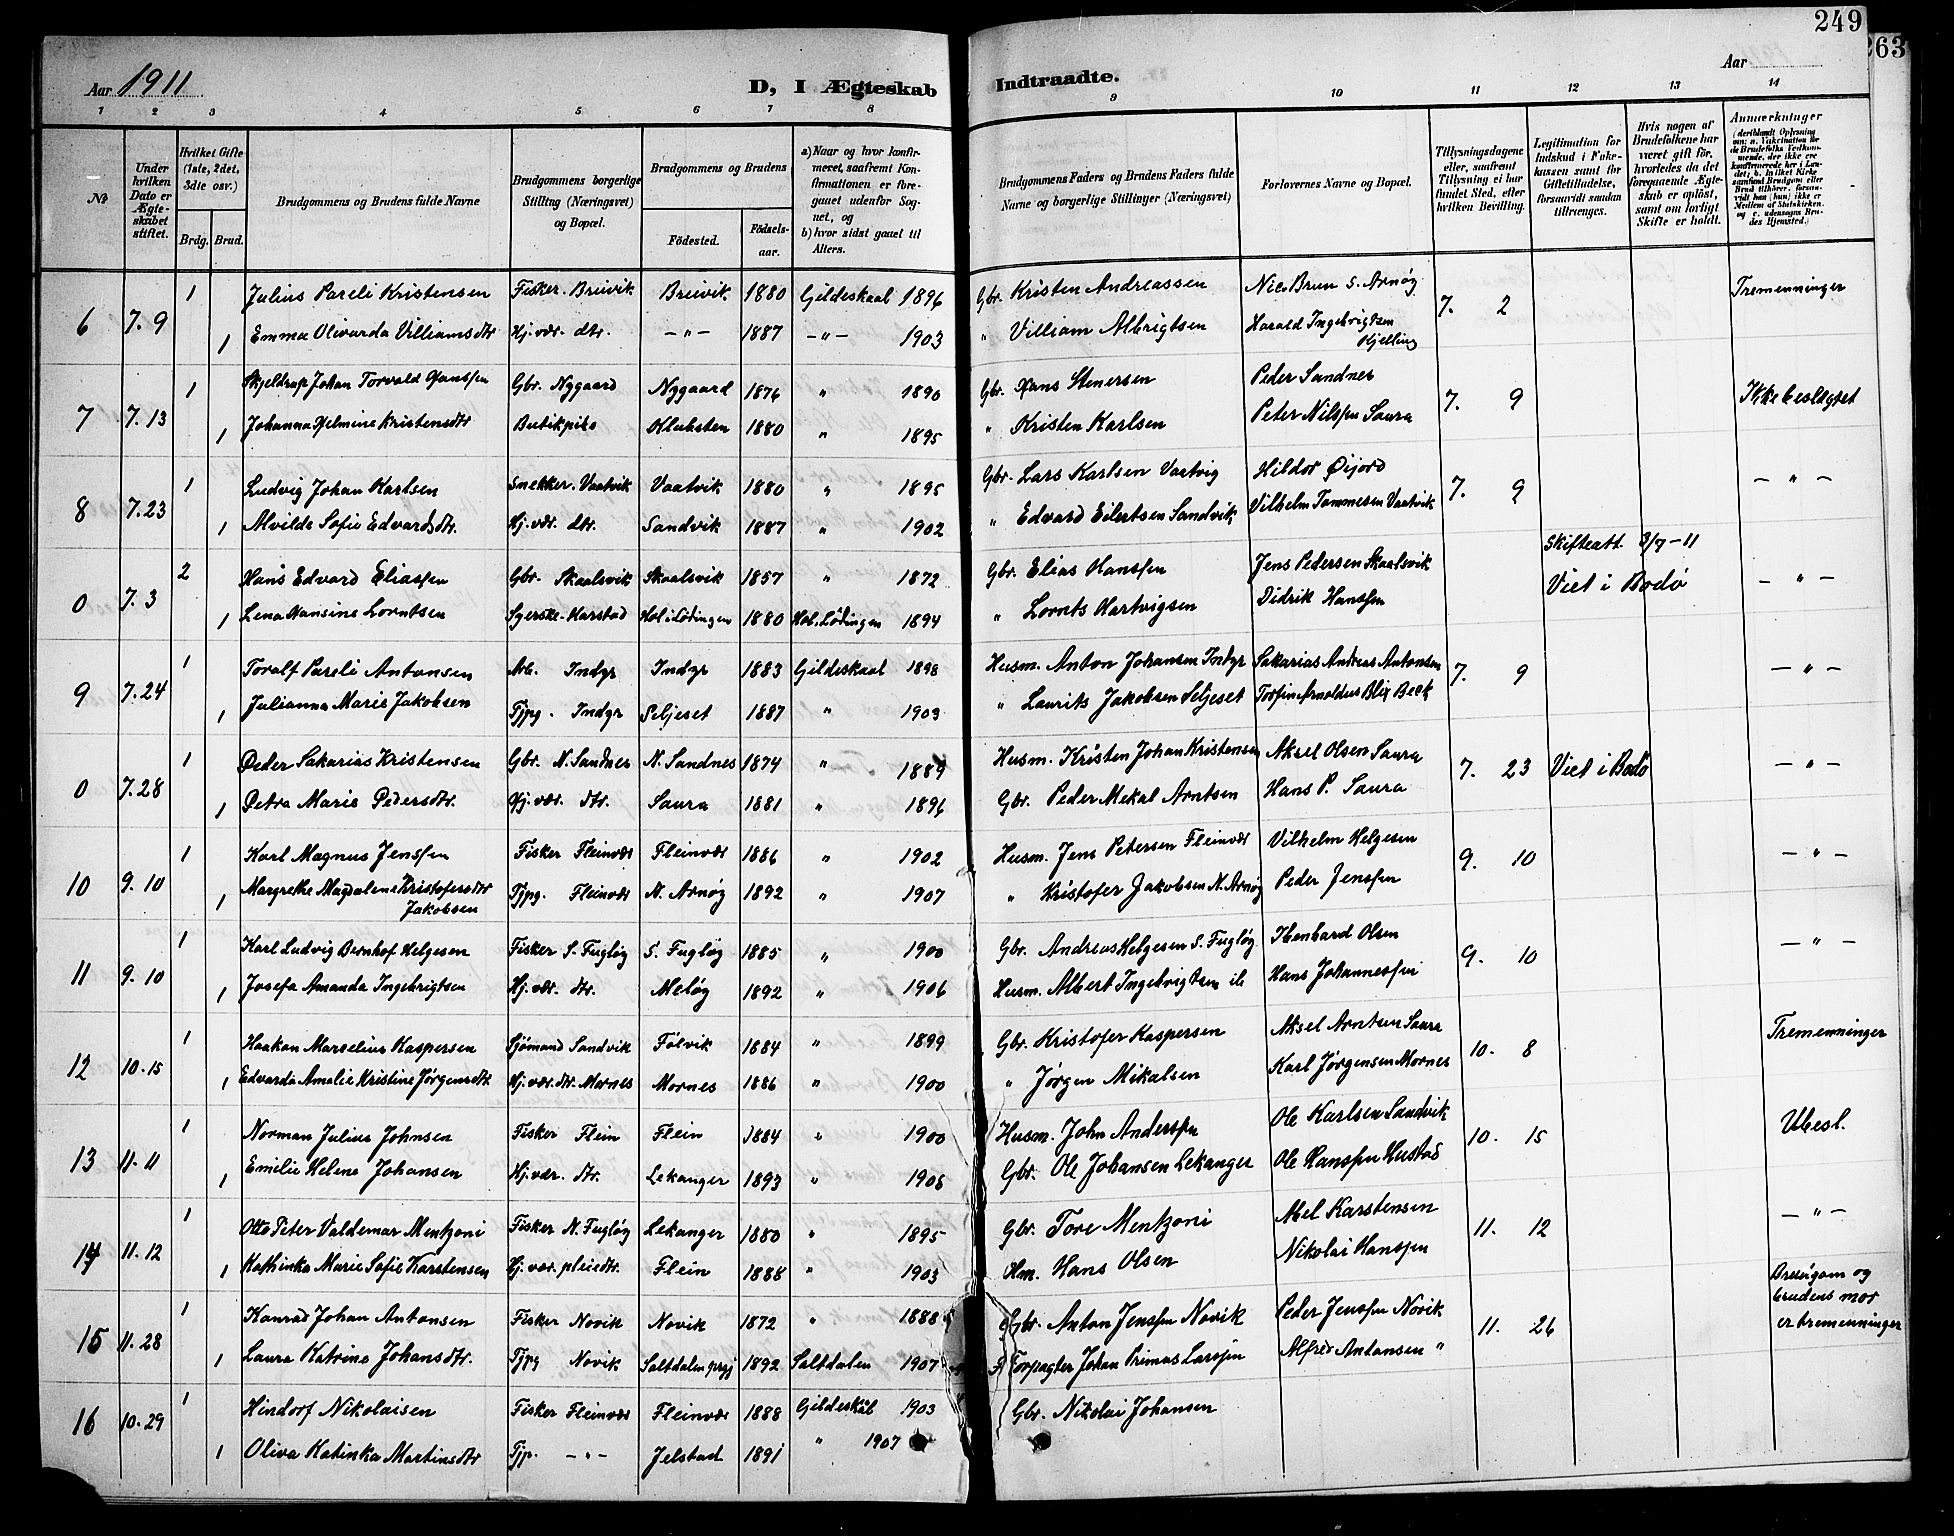 249
263
Aar 1911
D, I Ægteskab Indtraadte.
Aar
1 2 3 4 5 6 7 8 9 10 11 12 13 14
№
Under hvilken Dato er Ægteskabet stiftet.
Hvilket Gifte (1ste, 2det, 3die osv.)
Brdg. Brud.
Brudgommens og Brudens fulde Navne
Brudgommens borgerlige Stilling (Næringsvei) og Bopæl.
Brudgommens og Brudens
Födested.
Födselsaar.
a) Naar og hvor konfirmeret, saafremt Konfirmationen er foregaaet udenfor Sognet, og
b) hvor sidst gaaet til Alters.
Brudgommens Faders og Brudens Faders fulde Navne og borgerlige Stillinger (Næringsvei)
Forlovernes Navne og Bopæl.
Tillysningsdagene eller, saafremt Tillysning ei har fundet Sted, efter hvilken Bevilling.
Legitimation for Indskud i Enkekassen samt for Giftetilladelse, forsaavidt saadan tiltrænges.
Hvis nogen af Brudefolkene har været gift før, hvorledes da det foregaaende Ægteskab er opløst, samt om lovligt Skifte er holdt.
Anmærkninger
6 7.9 1 Julius Pareli Kristensen Fisker. Breivik Breivik 1880 Gildeskaal 1896 Gbr. Kristen Andreassen Nic Brun S. Arnøy 7. 2 Tremenninger
1 Emma Olivarda Villiamsdtr Hj. vær. dtr. -"- 1887 -"- 1903 " Villiam Albrigtsen Harald Ingebrigtsen Kjelling
7 7.13 1 Skjeldrup Johan Torvald Hanssen Gbr. Nygaard Nygaard 1876 " 1890 Gbr. Hans Stenersen Peder Sandnes 7. 9 Ikke beslegtet
1 Johanna Helmine Kristensdtr Butikpike 1880 " 1895 " Kristen Karlsen Peter Nilssen Saura
8 7.23 1 Ludvig Johan Karlsen Snekker. Vaatvik Vaatvik 1880 " 1895 Gbr. Lars Karlsen Vaatvig Hildor Øijord 7. 9 -"-
1 Alvilde Sofie Edvardsdtr. Hj. vær. dtr. Sandvik 1887 " 1902 " Edvard Eilertsen Sandvik Vilhelm Tommesen Vaatvik
0 7.3 2 Hans Edvard Eliassen Gbr. Skaalsvik Skaalsvik 1857 " 1872 Gbr. Elias Hanssen Jens Pedersen Skaalsvik Skifteatt. 3/7-11 Viet i Bodø -"-
1 Lena Hansine Lorntsen Syerske. Harstad Hol i Lödingen 1880 Hol. Lödingen 1894 " Lornts Hartvigsen Didrik Hanssen
9 7.24 1 Toralf Pareli Antonsen Arb. Indyr Indyr 1883 Gildeskaal 1898 Husm. Anton Johansen Indyr Sakarias Andreas Antonsen 7. 9 -"-
1 Julianna Marie Jakobsen Tjpg. Indyr Seljeset 1887 " 1903 " Laurits Jakobsen Seljeset Torfin Arnoldus Blix Beck
0 7.28 1 Peder Sakarias Kristensen Gbr. N. Sandnes N. Sandnes 1874 " 1889 Husm. Kristen Johan Kristensen Aksel Olsen Saura 7. 23 Viet i Bodø -"-
1 Petra Marie Pedersdtr. Hj. vær. dtr. Saura 1881 " 1896 Gbr. Peder Mekal Arntsen Hans P. Saura
10 9.10 1 Karl Magnus Jenssen Fisker Fleinvær Fleinvær 1886 " 1902 Husm. Jens Petersen Fleinvær Vilhelm Helgesen 9. 10 -"-
1 Margrethe Magdalene Kristofersdtr Jakobsen Tjpg. Fleinvær N. Arnøy 1892 " 1907 " Kristofer Jakobsen N. Arnøy Peder Jenssen
11 9.10 1 Karl Ludvig Bernhof Helgesen Fisker S. Fugløy S. Fugløy 1885 " 1900 Gbr. Andreas Helgesen S. Fugløy Olsen 9. 10 -"-
1 Josefa Amanda Ingebrigtsen Hj. vær. dtr. Meløy 1892 " 1906 Husm. Albert Ingebrigtsen ib Hans Johannessen
12 10.15 1 Haakon Marselius Kaspersen Sjömand Sandvik Følvik 1884 " 1899 Gbr. Kristofer Kaspersen Aksel Arntsen Saura 10. 8 Tremenninger
1 Edvarda Amalie Kristine Jørgensdtr. Hj. vær. dtr. Mornes Mornes 1886 " 1900 " Jørgen Mikalsen Karl Jørgensen Mornes
13 11.11 1 Norman Julius Johnsen Fisker Flein Flein 1884 " 1900 Husm. John Anderssen Ole Karlsen Sandvik 10. 15 Ubesl.
1 Emilie Helene Johansen Hj. vær. dtr. Lekanger 1893 " 1908 Gbr. Ole Johansen Lekanger Ole Hanssen Hustad
14 11.12 1 Otto Peter Valdemar Mentzoni Fisker N. Fugløy Lekanger 1880 " 1895 Gbr. Tore Mentzoni Karstensen 11. 12 -"-
1 Kathinka Marie Sofie Karstensen Hj. vær. pleiedtr. Flein 1888 " 1903 Hans Olsen Nikolai Hanssen
15 11.28 1 Konrad Johan Antonsen Fisker Novik Novik 1872 " 1888 Gbr. Anton Jenssen Novik Peder Jenssen Novik 11. 26 Brudgom og brudens mor er tremenninger
1 Laura Katrine Johansdtr. Tjpg Novik Saltdalen prgj 1892 Saltdalen 1907 Forpagter Johan Primus Larssen Alfred Antonsen "
16 10.29 1 Hindorf Nikolaisen Fisker Fleinvær Fleinvær 1888 Gildeskål 1903 Gbr. Nikolai Johansen
1 Oliva Katinka Martinsdtr Tjp. -"- Jelstad 1891 " 1907